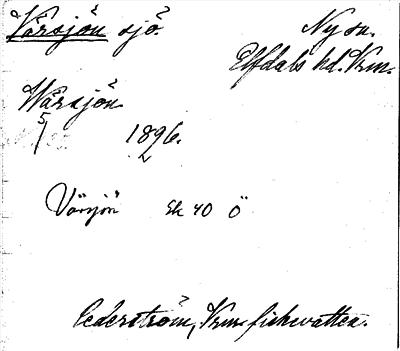 Vårsjön sjö.
Ny sn.
Elfdals hd. Vrm.
Wårsjön
5/ 1896.
Vårsjön Ek 40 Ö
Cederström, Vrm. fiskvatten.